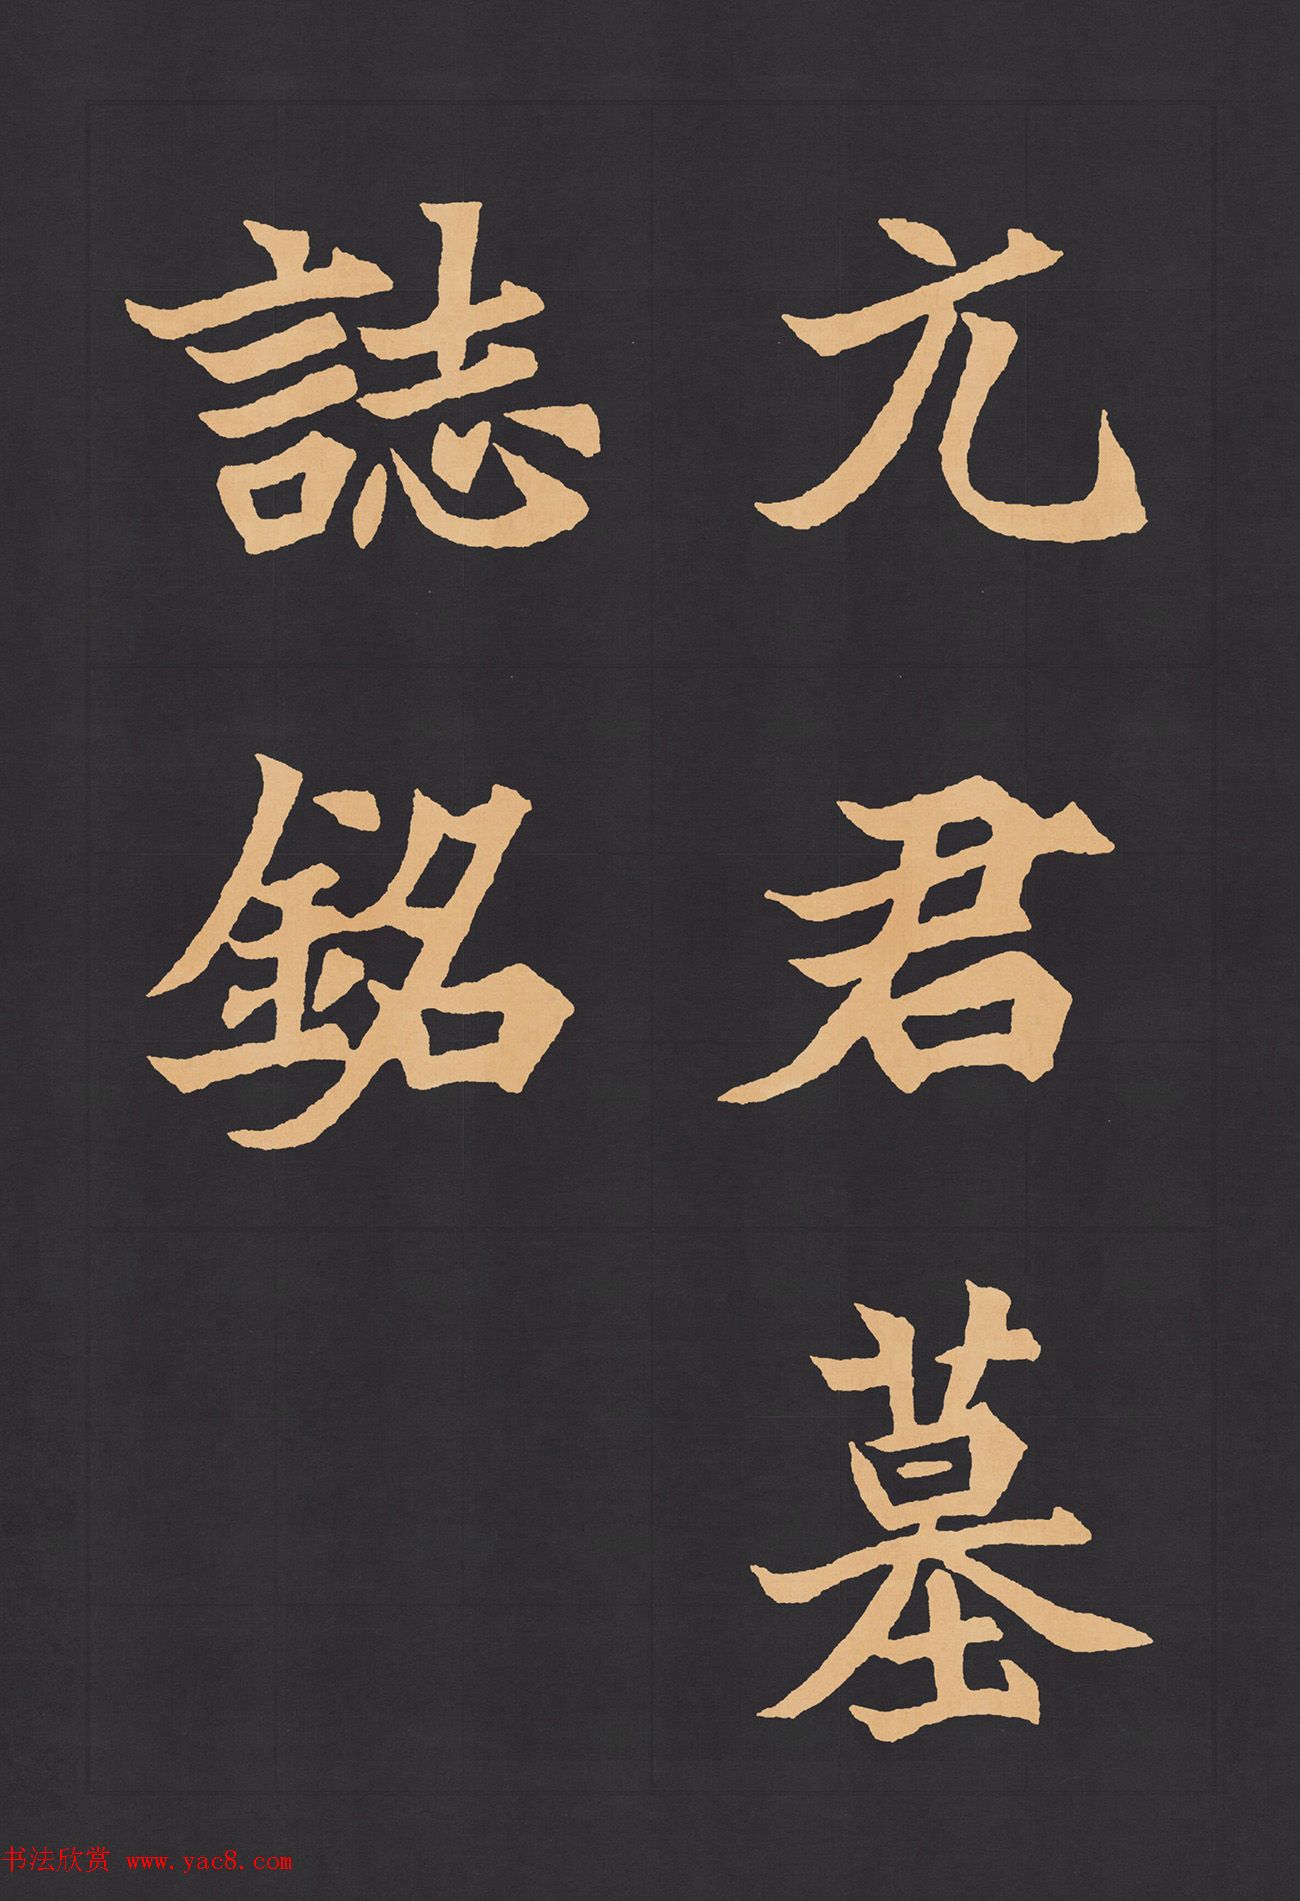 元君墓
誌銘
书法欣赏 www.yac8.com